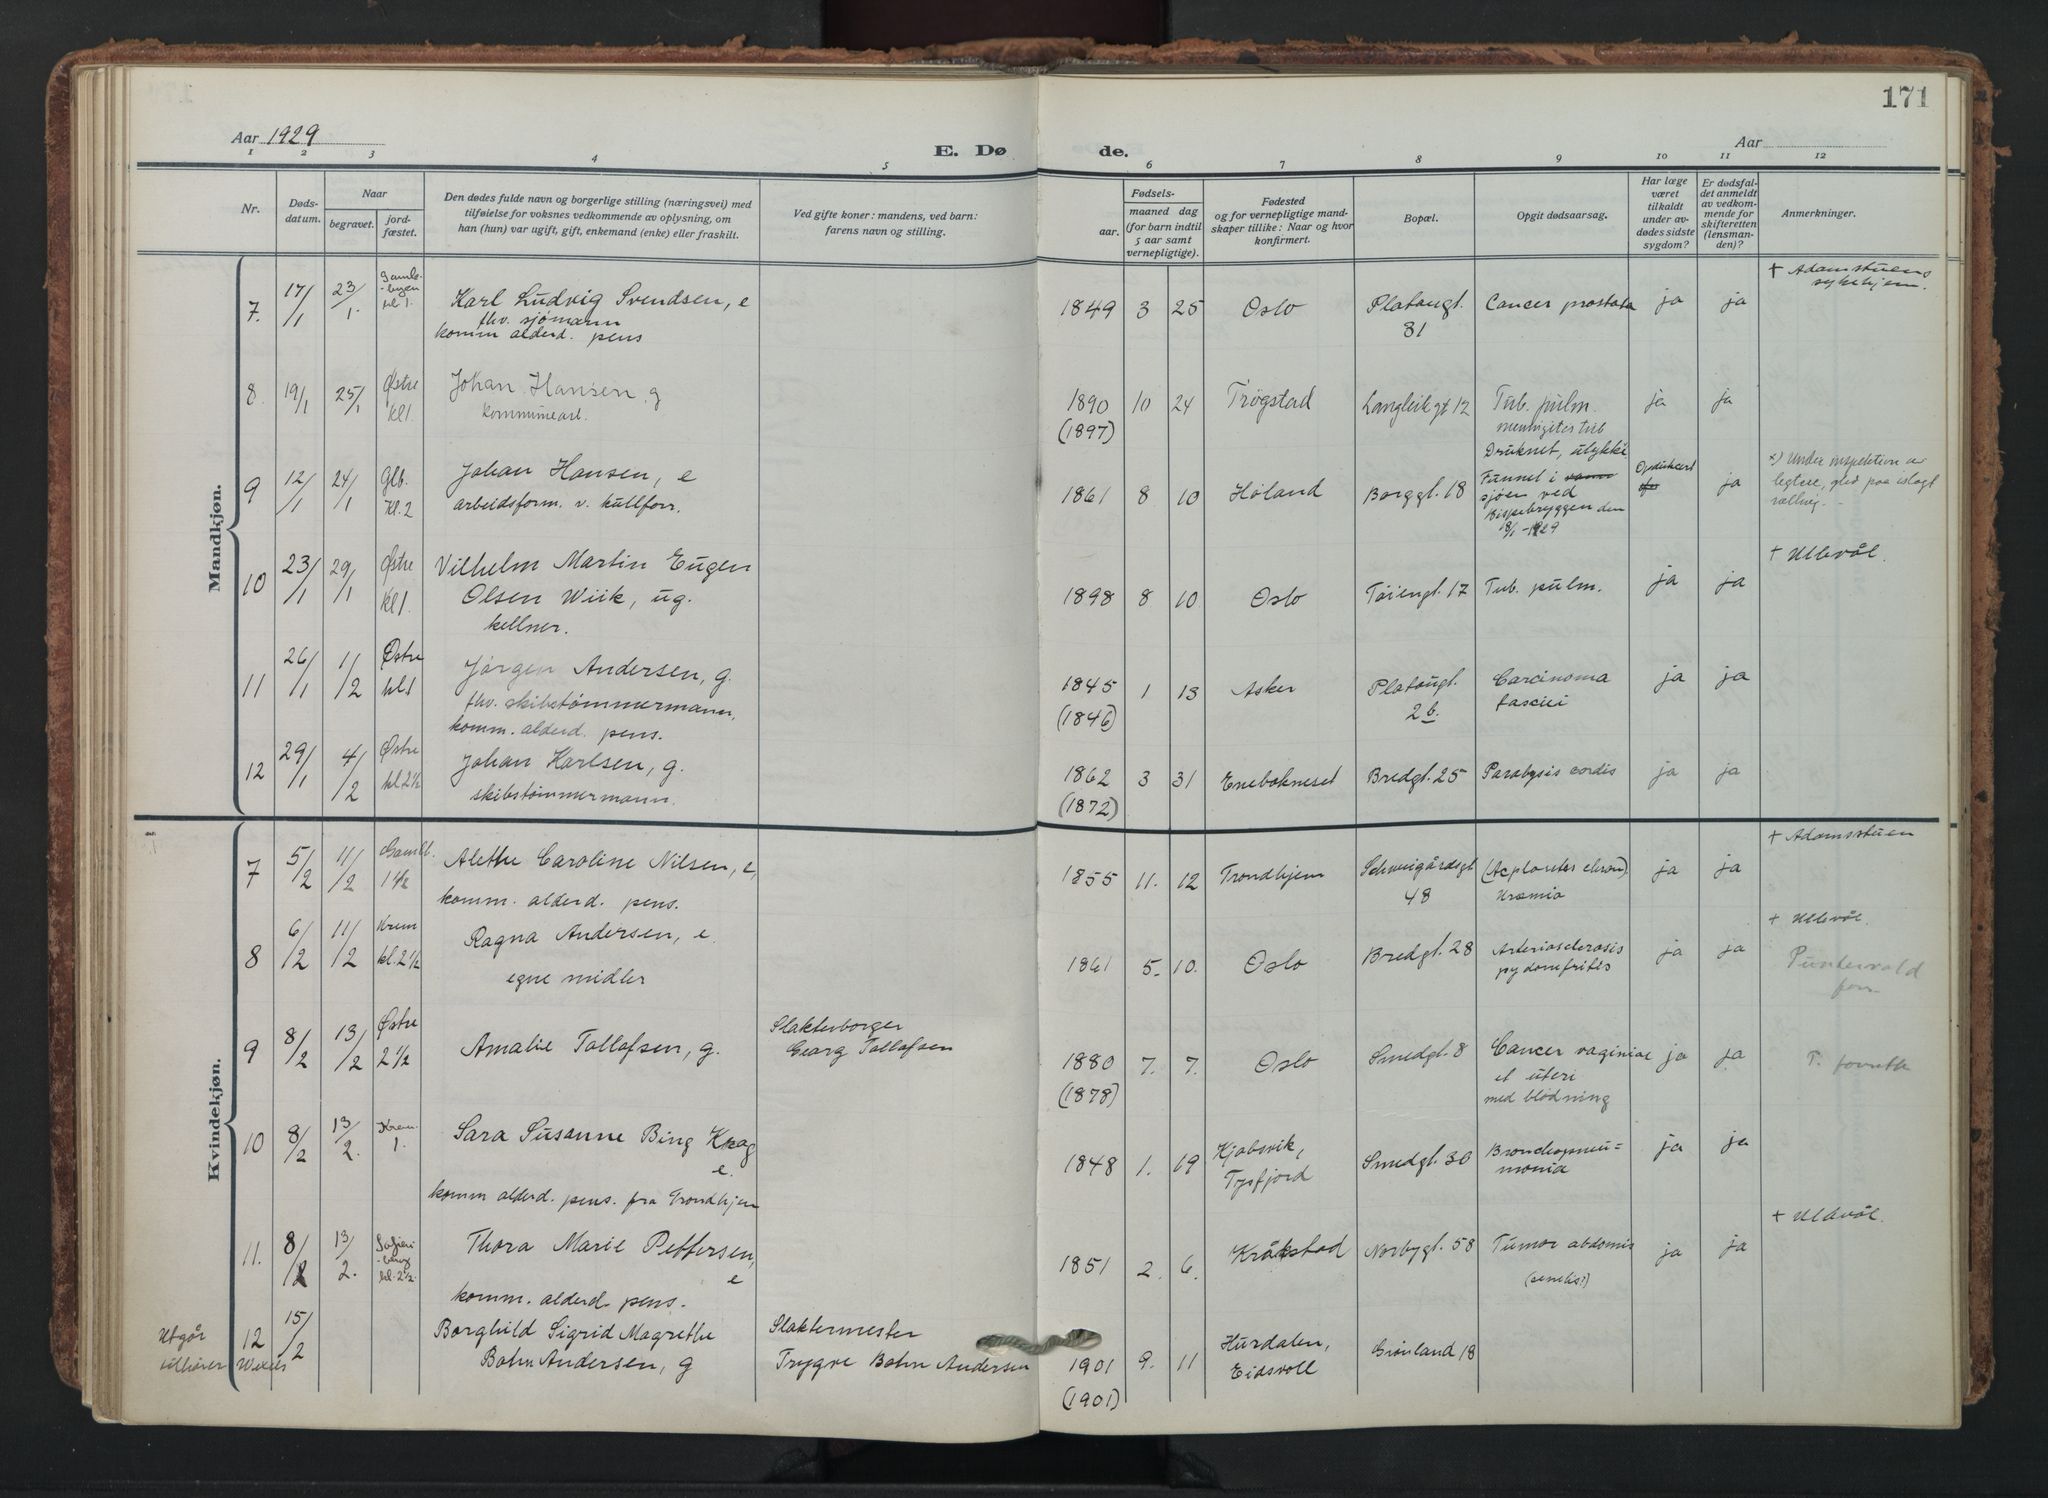 171
Aar 1929
E. Dø
de.
Aar
1 2 3 4 5 6 7 8 9 10 11 12
Nr.
Døds-
datum.
Naar
begravet.
jord-
fæstet.
Den dødes fulde navn og borgerlige stilling (næringsvei) med
tilføielse for voksnes vedkommende av oplysning, om
han (hun) var ugift, gift, enkemand (enke) eller fraskilt.
Ved gifte koner: mandens, ved barn:
farens navn og stilling.
Fødsels-
aar.
maaned dag
(for barn indtil
5 aar samt
vernepligtige).
Fødested
og for vernepligtige mand-
skaper tillike: Naar og hvor
konfirmert.
Bopæl.
Opgit dødsaarsag.
Har læge
været
tilkaldt
under av-
dødes sidste
sygdom?
Er dødsfal-
det anmeldt
av vedkom-
mende for
skifteretten
(lensman-
den)?
Anmerkninger.
Mandkjøn.
7. 17/1 23/1. Gamle-
byen
kl 1.
Karl Ludvig Svendsen, e
fhv. sjömann
komm alderd. pens
1849 3 25 Oslo Platougt.
81
Cancer prostata ja ja
+ Adamstuens
sykehjem.
8. 19/1 25/1 Østre
kl 1.
Johan Hansen. g
kommunearb.
1890 10 24 Trøgstad Langleikgt 12 Tub. pulm. ja ja
(1897)
meningites tub
9 12/1 24/1 Glb.
kl. 2
Johan Hansen, e
arbeidsform. v. kullforr.
1861 8 10 Høland Borggt. 18
Druknet, ulykke
Funnet i
sjøen ved
Bispebryggen den
18/1-1929
ja
x) Under inspektion av
legtere, gled paa islagt
10 23/1 29/1 Østre
kl 1.
Vilhelm Martin Eugen
Olsen Wiik, ug.
kellner.
1898 8 10 Oslo Töiengt. 17 Tub. pulm. ja ja
+ Ullevål.
11 26/1 1/2 Østre
kl 1
Jörgen Andersen, g.
fhv. skibstömmermann,
komm. alderd. pens.
1845 1 13 Asker Platougt.
2 b.
(1846)
Carcinoma
fasciei
ja ja
12 29/1 4/2 Østre
kl. 2 1/2
Johan Karlsen, g.
skibstömmermann.
1862 3 31 Enebokneset Bredgt. 25 Paralysis cordis ja ja
(1872)
Kvindekjøn.
7 5/2 11/2 Gamlb.
1 1/2
Alethe Caroline Nilsen, e,
komm. alderd. pens.
1855 11. 12 Trondhjem Schweigårdsgt
48
Uræmia
ja ja
+ Adamsstuen
8 6/2 11/2 Krem
kl. 2 1/2
Ragna Andersen, e.
egne midler
1861 5. 10. Oslo Bredgt. 28 Arteriosclerosis
pydonefritis
ja ja
+ Ullevål.
Puntervold
forr.
9 8/2 13/2 Østre
2 1/2
Amalie Tollafsen, g.
Slakterborger
Georg Tollafsen
1880 7. 7. Oslo Smedgt. 8 Cancer vaginiae ja ja
(1878)
et uteri
med blödning
T. forrettet
10 8/2 13/2. Krem.
1.
Sara Susanne Bing Krag
e.
komm alderd. pens. fra Trondhjem
1848 1. 19 Kjøbsvik,
Tysfjord
Smedgt. 30 Bronchopneu-
monia
ja ja
11. 8/2 13/2. Sofien-
berg
kl. 2 1/2.
Thora Marie Pettersen,
e
komm. alderd. pens.
1851 2. 6. Kråkstad Norbygt. 58 Tumor abdomis
(senelis?)
ja ja
+ Ullevål.
Utgår
tilhører Wexels
12 15/2
Borghild Sigrid Magrethe
Bohn Andersen, g
Slaktermester
Trygve Bohn Andersen
1901 9. 11 Hurdalen,
Eidsvoll
Grönland 18
(1901)